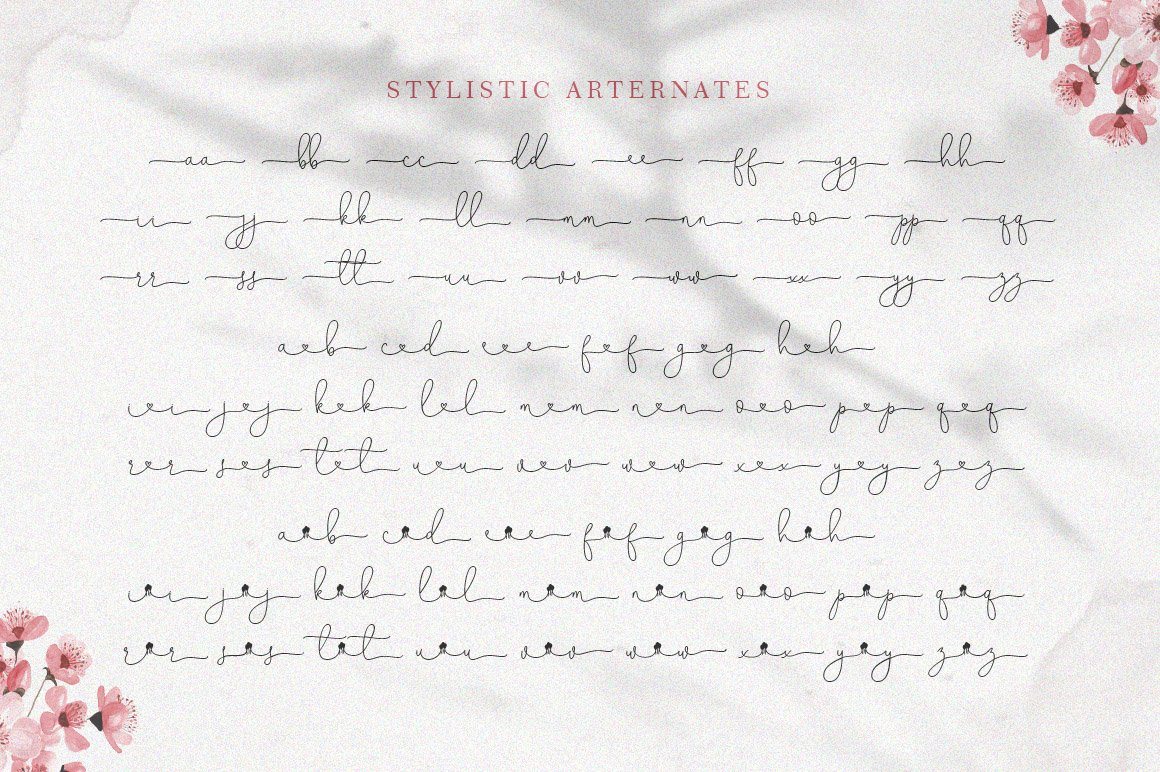 STYLISTIC ARTERNATES
aa bb cc dd ee ff gg hh
ii jj kk ll mm nn oo pp qq
rr ss tt uu vv ww xx yy zz
a♥b c♥d e♥e f♥f g♥g h♥h
i♥i j♥j k♥k l♥l m♥m n♥n o♥o p♥p q♥q
r♥r s♥s t♥t u♥u v♥v w♥w x♥x y♥y z♥z
a b c d e e f f g g h h
i i j j k k l l m m n n o o p p q q
r r s s t t u u v v w w x x y y z z